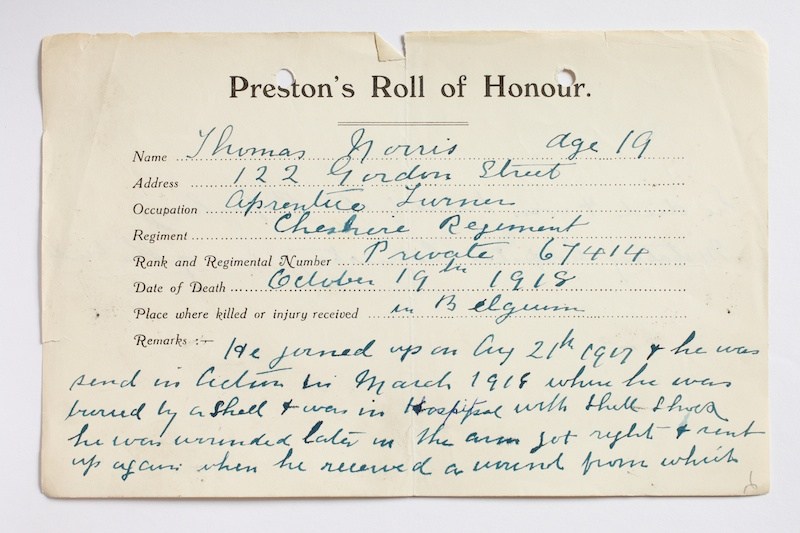 Preston's Roll of Honour.
Name Thomas Norris age 19
Address 122 Gordon Street
Occupation Aprentice Turner
Regiment Cheshire Regiment
Rank and Regimental Number Private 67414
Date of Death October 19th 1918
Place where killed or injury received in Belguim
Remarks :— He joined up on Aug 21st 1917 & he was
send in Action in March 1918 where he was
buried by a shell & was in Hospital with Shell Shock
he was wounded later in the arm got right & sent
up again when he received a wound from which